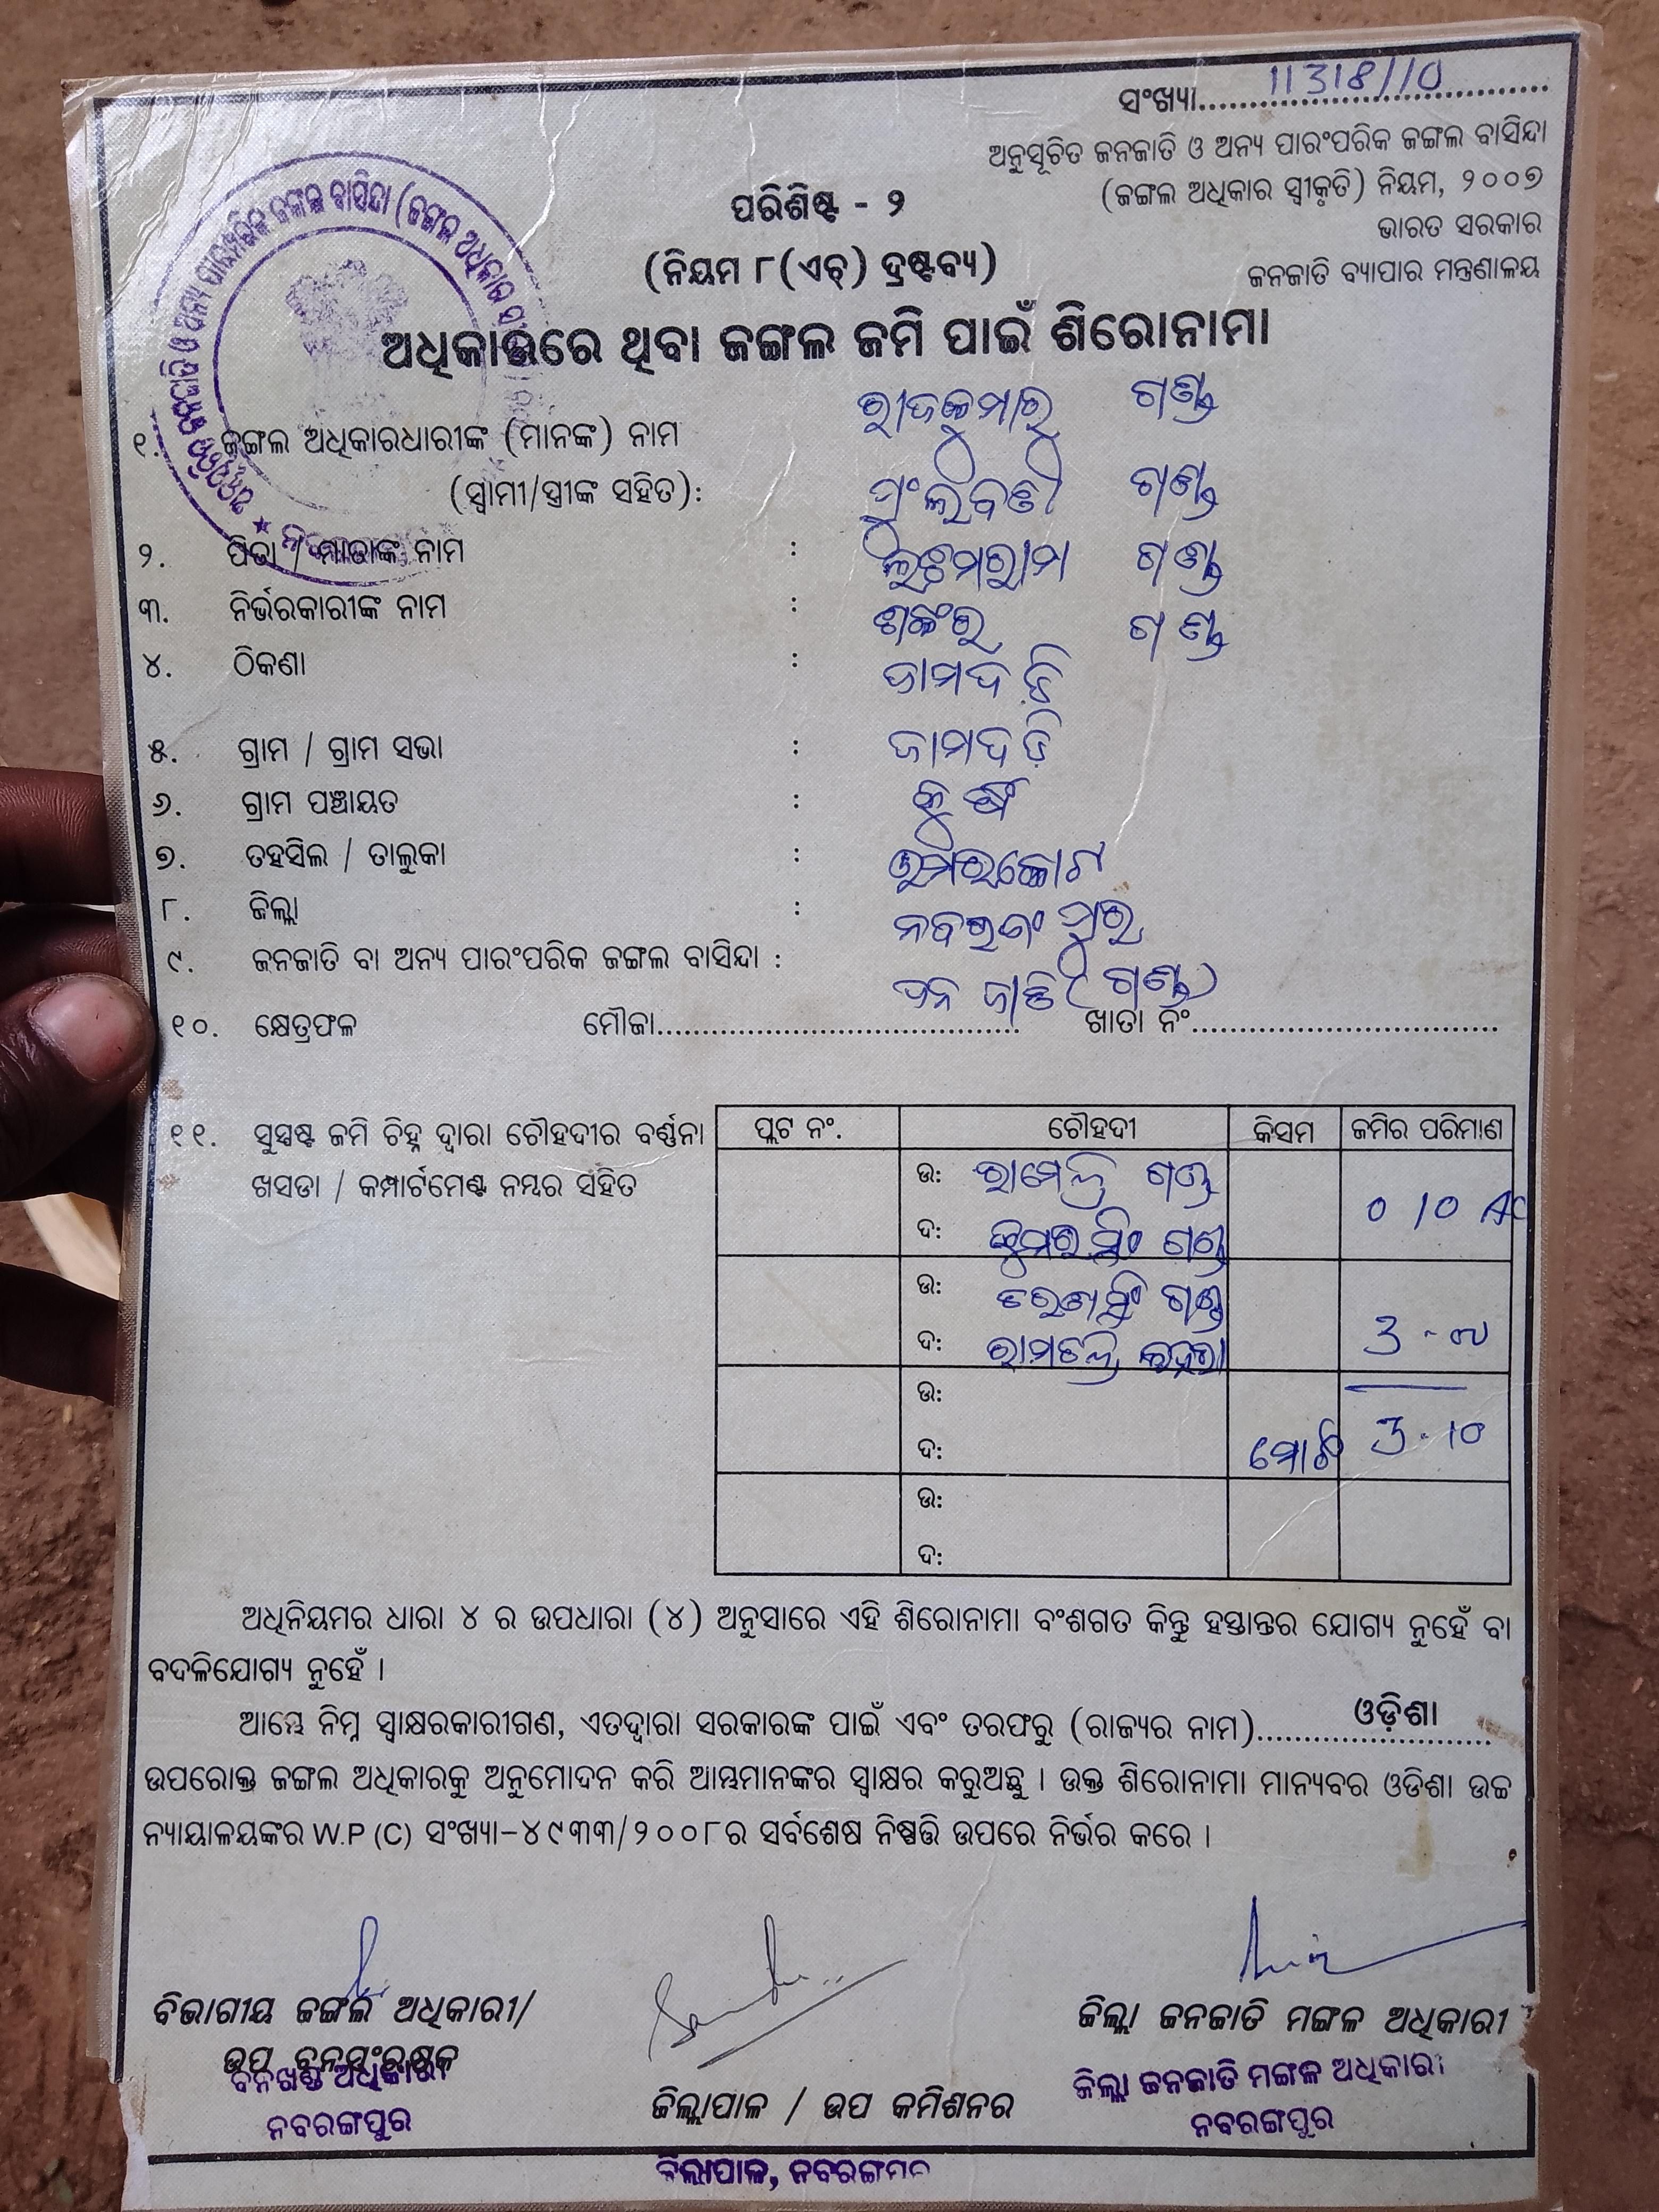 ସଂଖ୍ୟା.................................. 11318/10
ଅନୁସୂଚିତ ଜନଜାତି ଓ ଅନ୍ୟ ପାରଂପରିକ ଜଙ୍ଗଲ ବାସିନ୍ଦା
(ଜଙ୍ଗଲ ଅଧିକାର ସ୍ୱୀକୃତି) ନିୟମ, ୨୦୦୭
ଭାରତ ସରକାର
ଜନଜାତି ବ୍ୟାପାର ମନ୍ତ୍ରଣାଳୟ
ପରିଶିଷ୍ଟ - ୨
(ନିୟମ ୮(ଏଚ୍) ଦ୍ରଷ୍ଟବ୍ୟ)
ଅଧିକାରରେ ଥିବା ଜଙ୍ଗଲ ଜମି ପାଇଁ ଶିରୋନାମା
୧. ଜଙ୍ଗଲ ଅଧିକାରଧାରୀଙ୍କ (ମାନଙ୍କ) ନାମ ଗଣ୍ଡ
(ସ୍ୱାମୀ/ସ୍ତ୍ରୀଙ୍କ ସହିତ): ଗଣ୍ଡ
୨. ପିତା / ମାତାଙ୍କ ନାମ : ଗଣ୍ଡ
୩. ନିର୍ଭରକାରୀଙ୍କ ନାମ : ଶଙ୍କର ଗଣ୍ଡ
୪. ଠିକଣା :
୫. ଗ୍ରାମ / ଗ୍ରାମ ସଭା :
୬. ଗ୍ରାମ ପଞ୍ଚାୟତ :
୭. ତହସିଲ / ତାଲୁକା : ଉମରକୋଟ
୮. ଜିଲ୍ଲା : ନବରଙ୍ଗପୁର
୯. ଜନଜାତି ବା ଅନ୍ୟ ପାରଂପରିକ ଜଙ୍ଗଲ ବାସିନ୍ଦା : ଜନ ଜାତି (ଗଣ୍ଡ)
୧୦. କ୍ଷେତ୍ରଫଳ ମୌଜା........................................ ଖାତା ନଂ..................................
୧୧. ସୁସ୍ପଷ୍ଟ ଜମି ଚିହ୍ନ ଦ୍ୱାରା ଚୌହଦୀର ବର୍ଣ୍ଣନା
ଖସଡା / କମ୍ପାର୍ଟମେଣ୍ଟ ନମ୍ବର ସହିତ
ପ୍ଲଟ ନଂ. ଚୌହଦୀ କିସମ ଜମିର ପରିମାଣ
ଉ: ଗଣ୍ଡ
ଦ: କୁମର ସିଂ ଗଣ୍ଡ 0 10 AC
ଉ: ଗଣ୍ଡ
ଦ: ରାମଚନ୍ଦ୍ର
ଉ:
ଦ: ମୋଟ 3.10
ଉ:
ଦ:
ଅଧିନିୟମର ଧାରା ୪ ର ଉପଧାରା (୪) ଅନୁସାରେ ଏହି ଶିରୋନାମା ବଂଶଗତ କିନ୍ତୁ ହସ୍ତାନ୍ତର ଯୋଗ୍ୟ ନୁହେଁ ବା
ବଦଳିଯୋଗ୍ୟ ନୁହେଁ ।
ଆମ୍ଭେ ନିମ୍ନ ସ୍ୱାକ୍ଷରକାରୀଗଣ, ଏତଦ୍ୱାରା ସରକାରଙ୍କ ପାଇଁ ଏବଂ ତରଫରୁ (ରାଜ୍ୟର ନାମ)..........ଓଡ଼ିଶା..........
ଉପରୋକ୍ତ ଜଙ୍ଗଲ ଅଧିକାରକୁ ଅନୁମୋଦନ କରି ଆମ୍ଭମାନଙ୍କର ସ୍ୱାକ୍ଷର କରୁଅଛୁ । ଉକ୍ତ ଶିରୋନାମା ମାନ୍ୟବର ଓଡିଶା ଉଚ୍ଚ
ନ୍ୟାୟାଳୟଙ୍କର W.P (C) ସଂଖ୍ୟା-୪୯୩୩/୨୦୦୮ର ସର୍ବଶେଷ ନିଷ୍ପତ୍ତି ଉପରେ ନିର୍ଭର କରେ ।
ବିଭାଗୀୟ ଜଙ୍ଗଲ ଅଧିକାରୀ/
ଉପ ବନସଂରକ୍ଷକ
ବନଖଣ୍ଡ ଅଧିକାରୀ
ନବରଙ୍ଗପୁର
ଜିଲ୍ଲାପାଳ / ଉପ କମିଶନର
ଜିଲ୍ଲାପାଳ, ନବରଙ୍ଗପୁର
ଜିଲ୍ଲା ଜନଜାତି ମଙ୍ଗଳ ଅଧିକାରୀ
ଜିଲ୍ଲା ଜନଜାତି ମଙ୍ଗଳ ଅଧିକାରୀ
ନବରଙ୍ଗପୁର